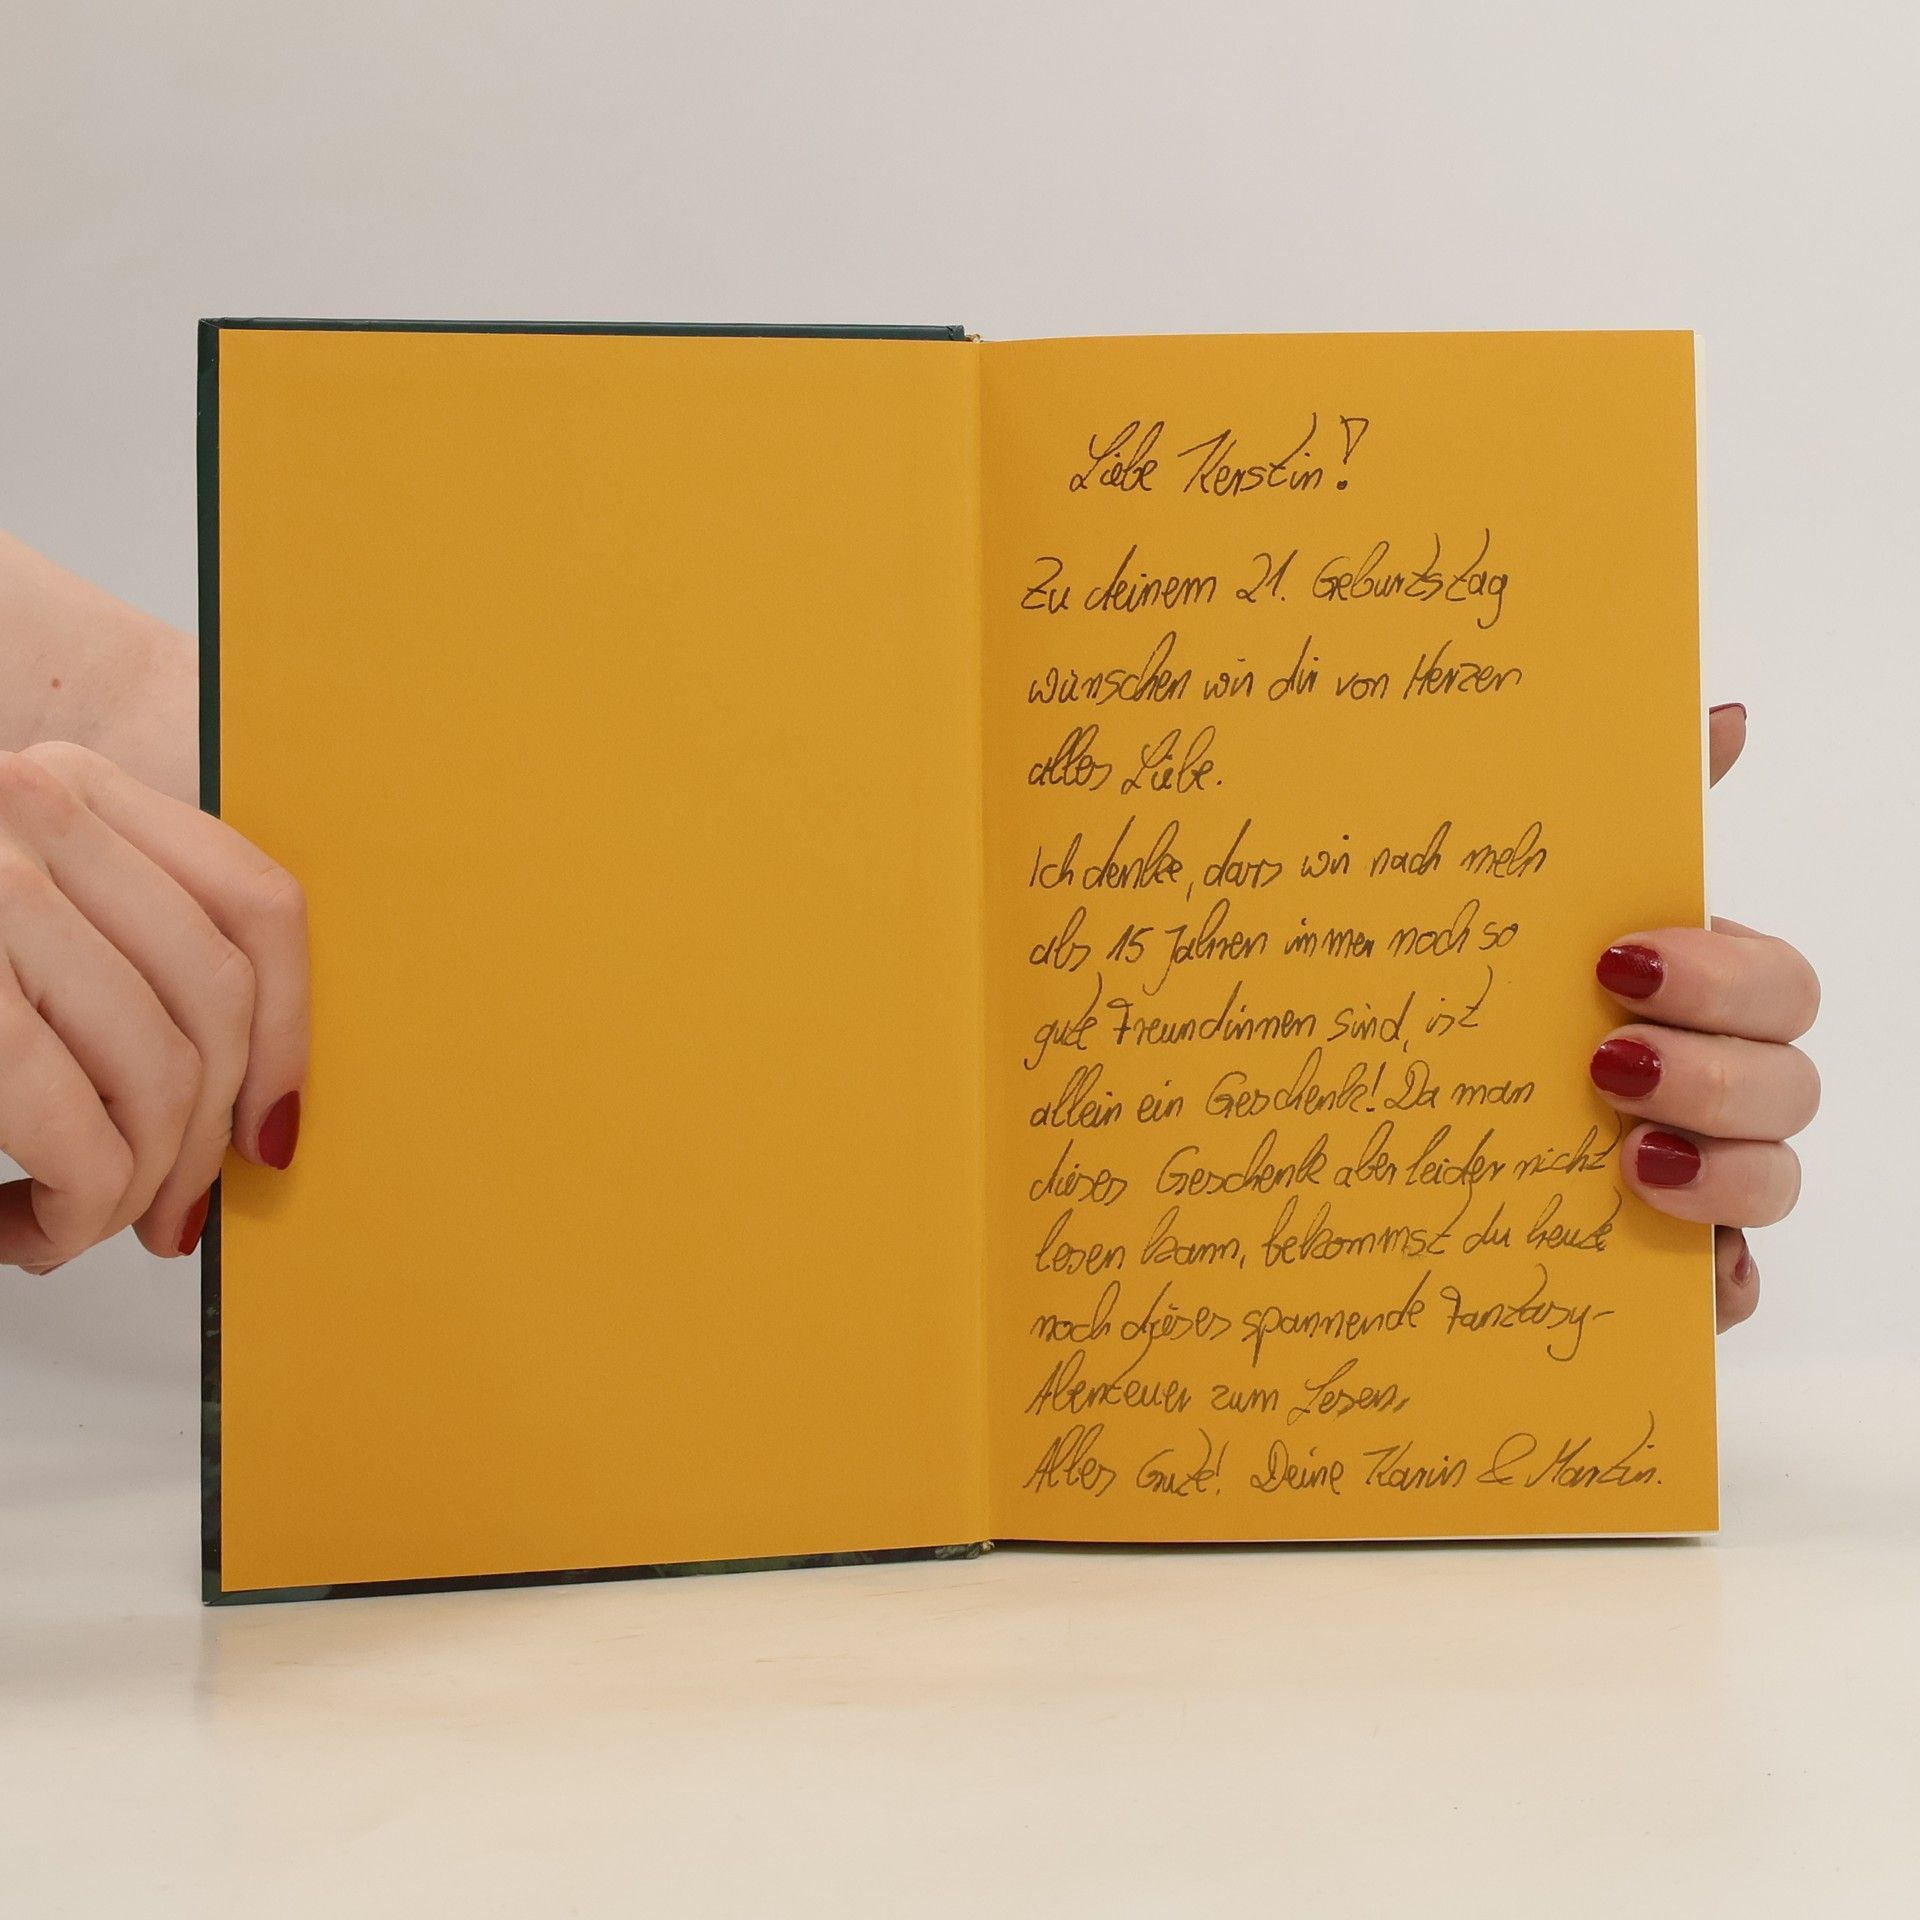 Liebe Kerstin!
Zu deinem 21. Geburtstag
wünschen wir dir von Herzen
alles Liebe.
Ich denke, dass wir nach mehr
als 15 Jahren immer noch so
gute Freundinnen sind, ist
allein ein Geschenk! Da man
dieses Geschenk aber leider nicht
lesen kann, bekommst du heute
noch dieses spannende Fantasy-
Abenteuer zum Lesen.
Alles Gute! Deine Karin & Martin.